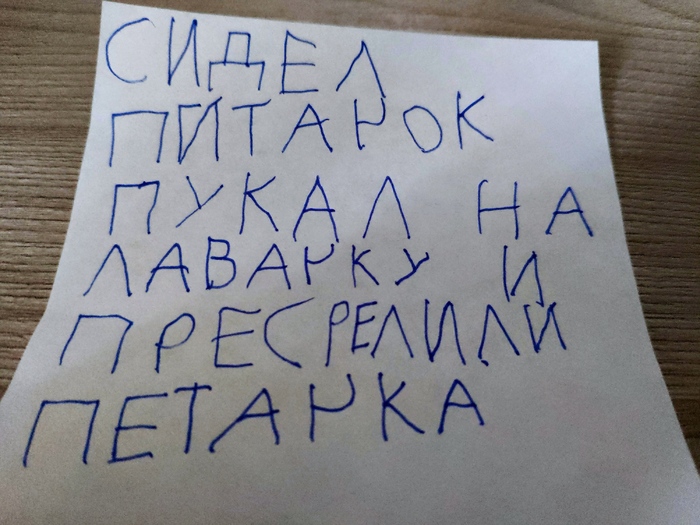 СИДЕЛ
ПИТАЧОК
ПУКАЛ НА
ЛАВАЧКУ И
ПРЕСРЕЛИЛИ
ПЕТАЧКА